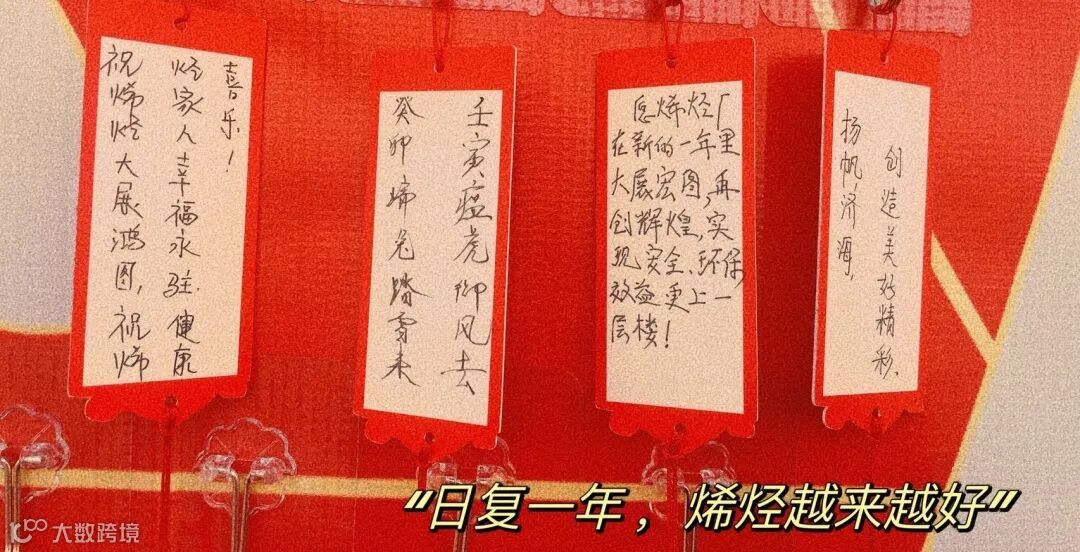 祝烯烃大展鸿图,祝烯
烃家人幸福永驻.健康
喜乐!
壬寅瘟虎风去
癸卯兔踏雪来
愿烯烃厂
在新的一年里
大展宏图,再
创辉煌,实
现安全、环保
效益更上一
层楼!
扬帆济海,
创造美好精彩.
"日复一年,烯烃越来越好"
大数跨境